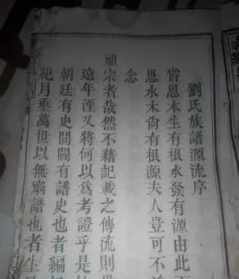 劉氏族譜源流序
嘗思木生有根水發有源由此
思水木尚有根源夫人豈可不
念
祖宗者哉然不藉記載之傳流則
遠年湮又將何以為考證乎是
朝廷有史閭閻有譜史也者編
紀月垂萬世以無窮譜也者生